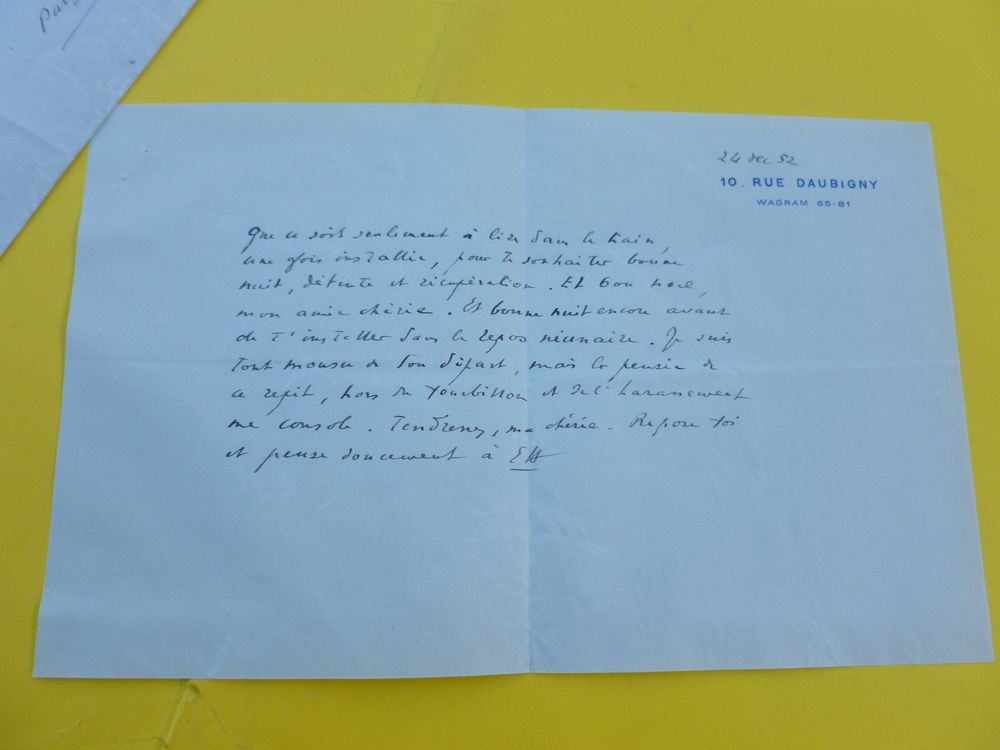 24 dec 52
10. RUE DAUBIGNY
WAGRAM 65-81
Que ce soit seulement à lire dans le train,
une fois installée, pour te souhaiter bonne
nuit, détente et récupération. Et bon noël,
mon amie chérie. Et bonne nuit encore avant
de t'installer dans le repos nécessaire. Je suis
tout de ton départ, mais la pensée de
ce répit, hors du tourbillon et de l'harassement
me console. Tendresses, ma chérie. Repose toi
et pense doucement à EH